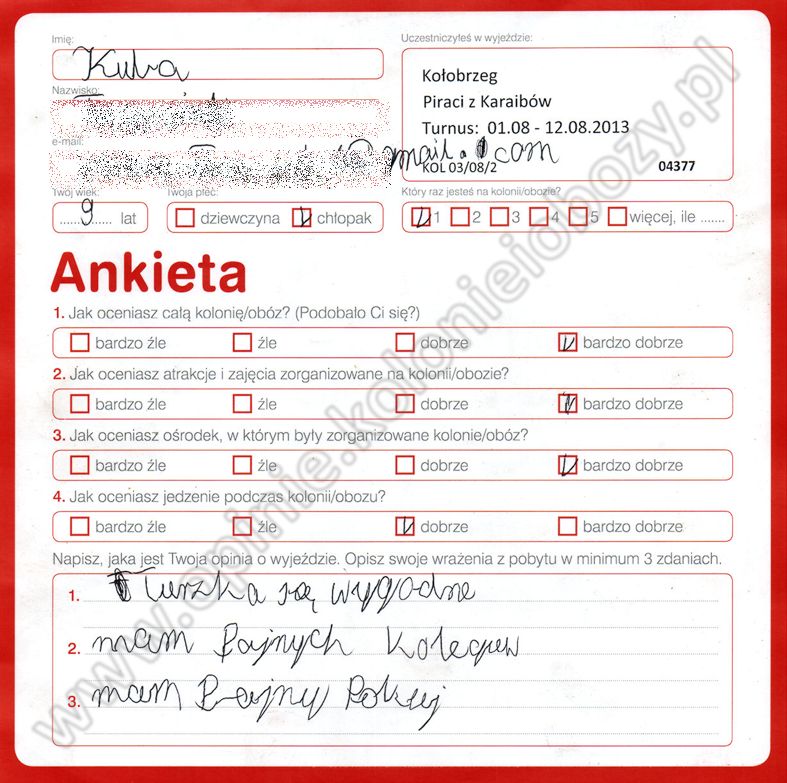 Imię:
Kuba
Uczestniczyłeś w wyjeździe:
Kołobrzeg
Piraci z Karaibów
Turnus: 01.08 - 12.08.2013
KOL 03/08/2 04377
Nazwisko:
e-mail:
@gmail.com
Twój wiek:
9 lat
Twoja płeć:
dziewczyna chłopak
Który raz jesteś na kolonii/obozie?
1 2 3 4 5 więcej, ile .......
Ankieta
1. Jak oceniasz całą kolonię/obóz? (Podobało Ci się?)
bardzo źle źle dobrze bardzo dobrze
2. Jak oceniasz atrakcje i zajęcia zorganizowane na kolonii/obozie?
bardzo źle źle dobrze bardzo dobrze
3. Jak oceniasz ośrodek, w którym były zorganizowane kolonie/obóz?
bardzo źle źle dobrze bardzo dobrze
4. Jak oceniasz jedzenie podczas kolonii/obozu?
bardzo źle źle dobrze bardzo dobrze
Napisz, jaka jest Twoja opinia o wyjeździe. Opisz swoje wrażenia z pobytu w minimum 3 zdaniach.
1. Łuszka są wygodne
2. mam fajnych koleguw
3. mam fajny pokuj
www.opinie.kolonieiobozy.pl